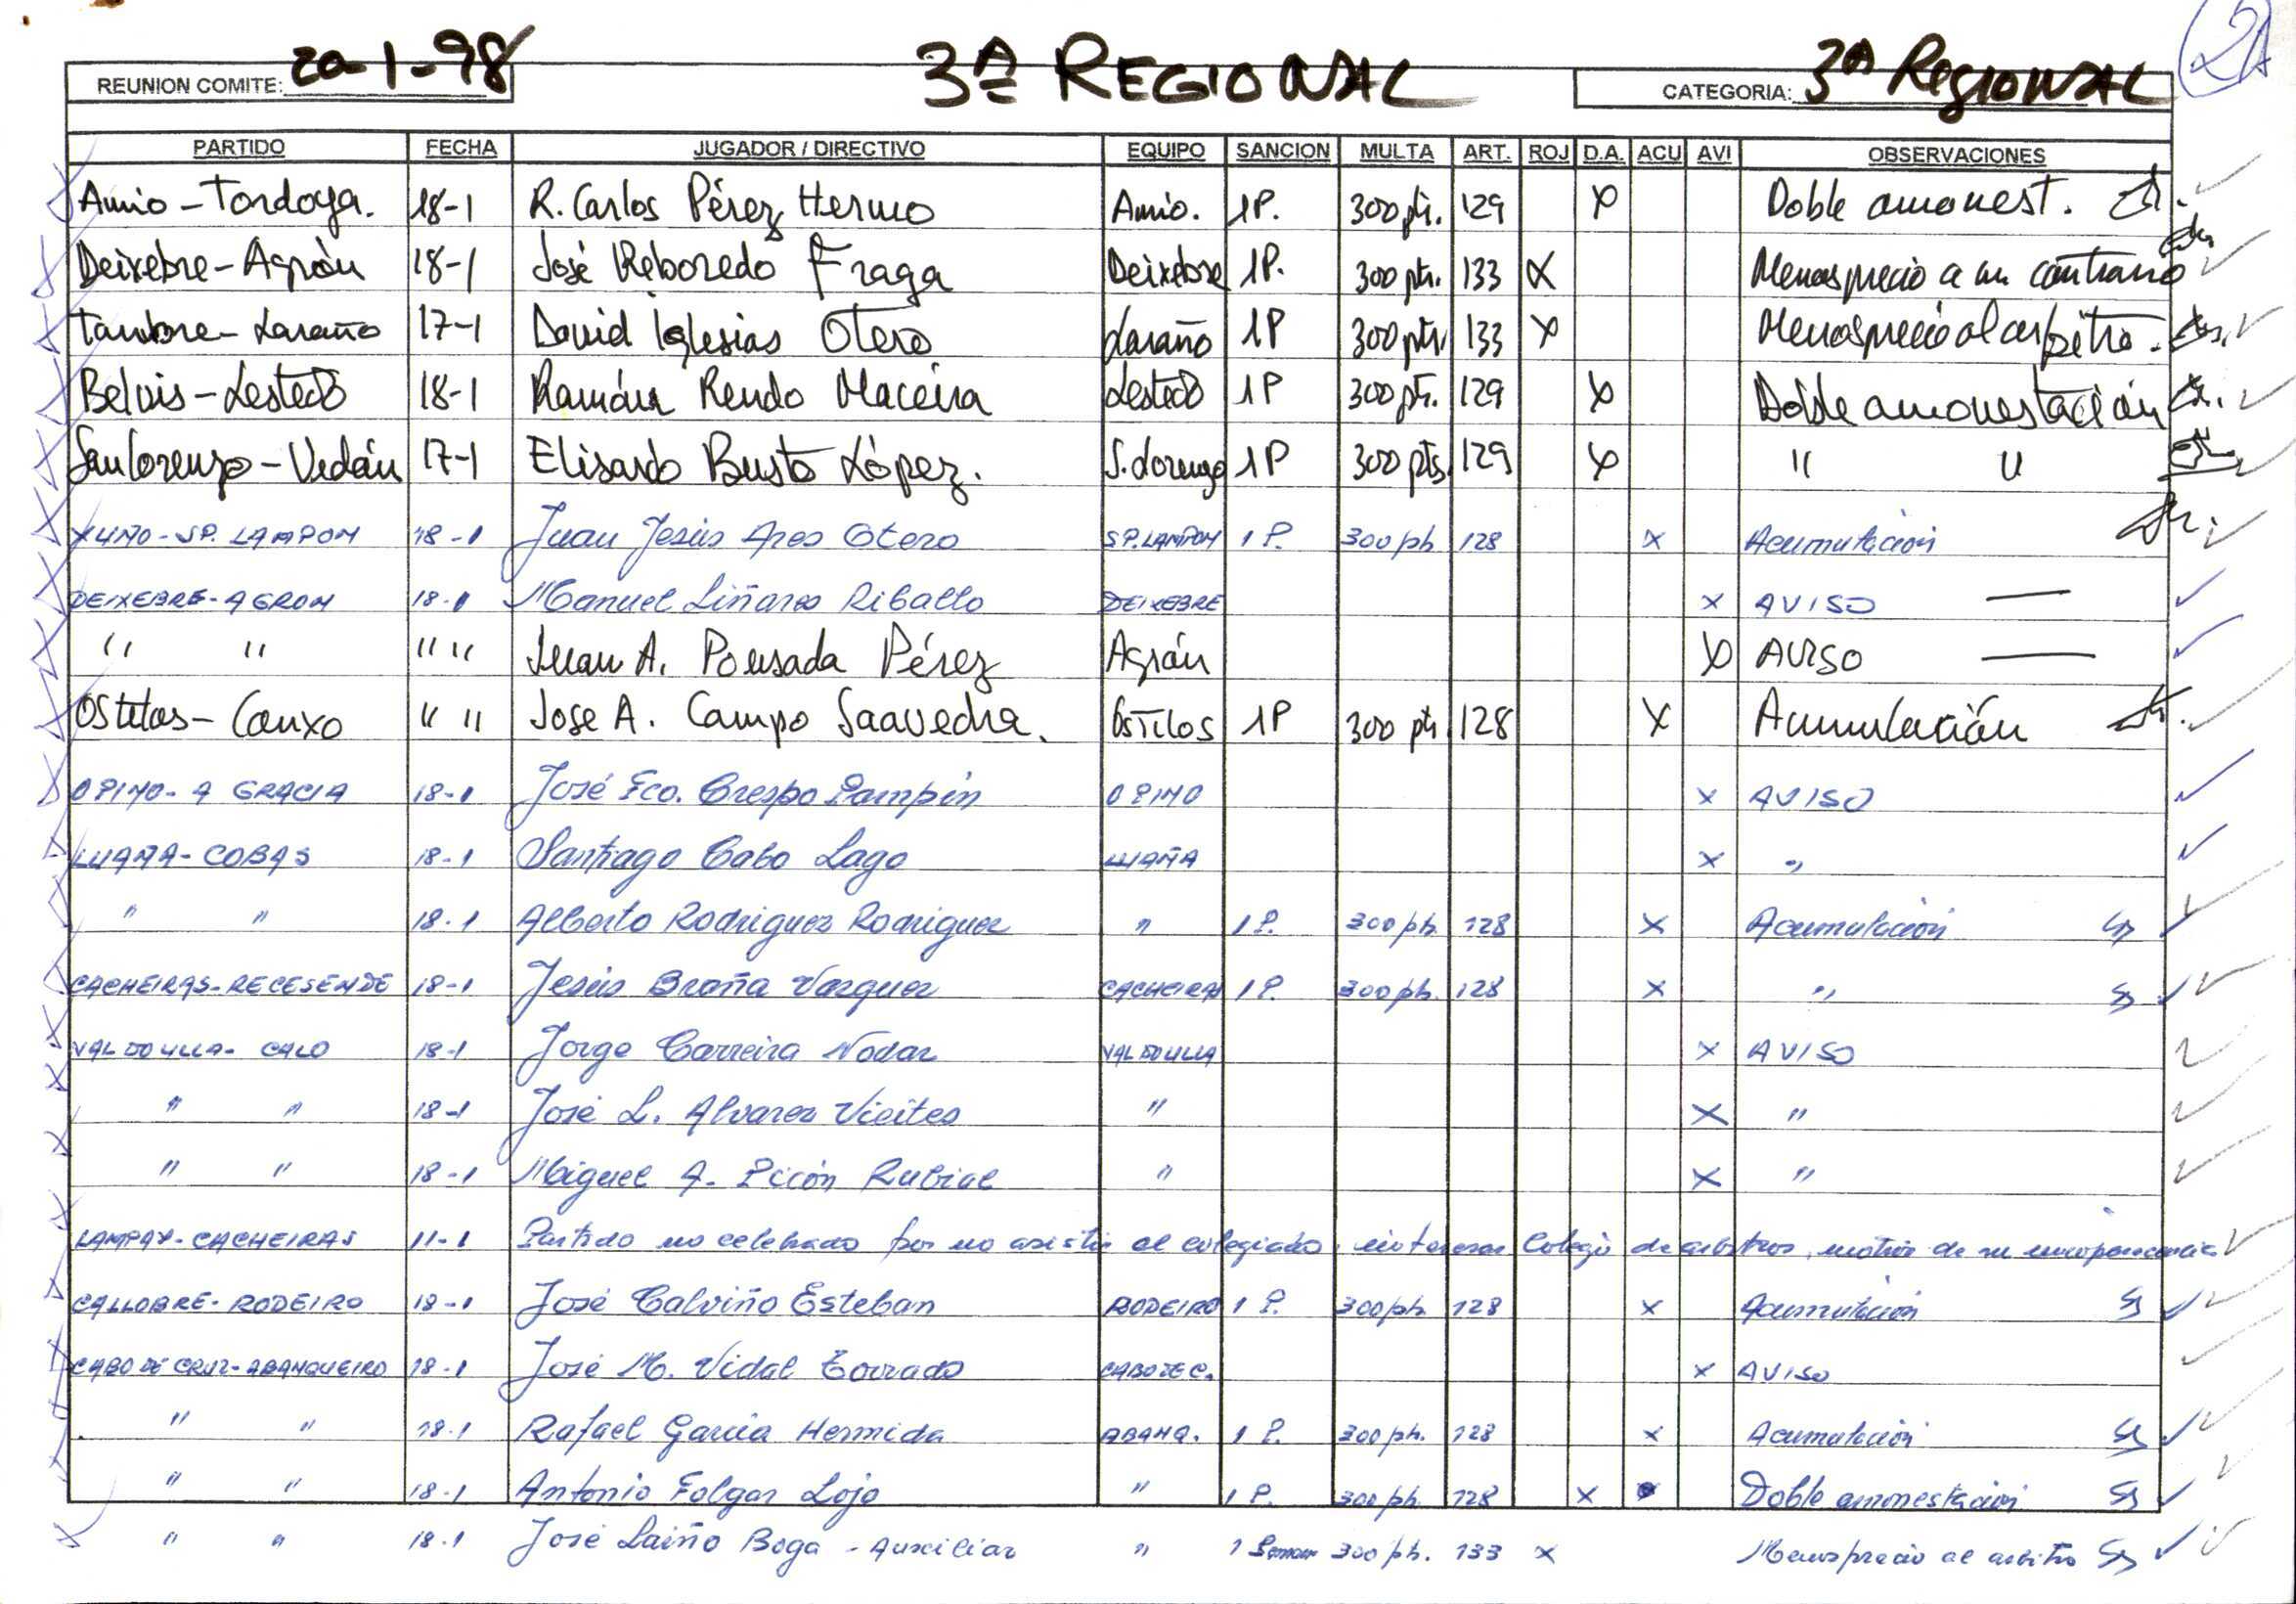 REUNION COMITE: 20-1-98 3ª REGIONAL CATEGORIA: 3ª REGIONAL 21
PARTIDO FECHA JUGADOR / DIRECTIVO EQUIPO SANCION MULTA ART. ROJ D.A. ACU AVI OBSERVACIONES
Amio - Tordoya. 18-1 R. Carlos Pérez Hermo Amio. 1P. 300 pts. 129 X Doble amonest.
Deixebre - Agrón 18-1 José Reboredo Fraga Deixebre 1P. 300 pts. 133 X Menosprecio a un contrario
Tambre - Laraño 17-1 David Iglesias Otero Laraño 1P 300 pts. 133 X Menosprecio al arbitro.
Belvis - Lestedo 18-1 Ramón Rendo Maceira Lestedo 1P 300 pts. 129 X Doble amonestación
San Lorenzo - Vedón 17-1 Elisardo Busto López. S. Lorenzo 1P 300 pts. 129 X " "
XUÑO - SP. LAMPON 18-1 Juan Jesús Ares Otero SP. LAMPON 1 P. 300 pts 128 X Acumulación
DEIXEBRE - AGRON 18-1 Manuel Liñares Riballo DEIXEBRE X AVISO —
" " " " Juan A. Pousada Pérez Agrón X AVISO —
Os Tilos - Conxo " " Jose A. Campo Saavedra. Os Tilos 1P 300 pts. 128 X Acumulación
O PINO - A GRACIA 18-1 José Fco. Crespo Pampín O PINO X AVISO
LUAÑA - COBAS 18-1 Santiago Cabo Lago LUAÑA X "
" " 18-1 Alberto Rodriguez Rodriguez " 1 P. 300 pts. 128 X Acumulación
CACHEIRAS - RECESENDE 18-1 Jesús Braña Vazquez CACHEIRAS 1 P. 300 pts. 128 X "
VALDOULLA - CALO 18-1 Jorge Carreira Nodar VALDOULLA X AVISO
" " 18-1 José L. Alvarez Vieites " X "
" " 18-1 Miguel A. Picón Rubial " X "
LAMPAY - CACHEIRAS 11-1 Partido no celebrado por no asistir el colegiado, Colegio de arbitros, motivo de su incomparecencia
CALLOBRE - RODEIRO 18-1 José Calviño Esteban RODEIRO 1 P. 300 pts. 128 X Acumulación
CABO DE CRUZ - ABANQUEIRO 18-1 José M. Vidal Torrado CABO DE C. X AVISO
" " 18-1 Rafael García Hermida ABANQ. 1 P. 300 pts. 128 X Acumulación
" " 18-1 Antonio Folgar Lojo " 1 P. 300 pts. 128 X Doble amonestación
" " 18-1 José Laiño Boga - Auxiliar " 1 Semana 300 pts. 133 X Menosprecio al arbitro